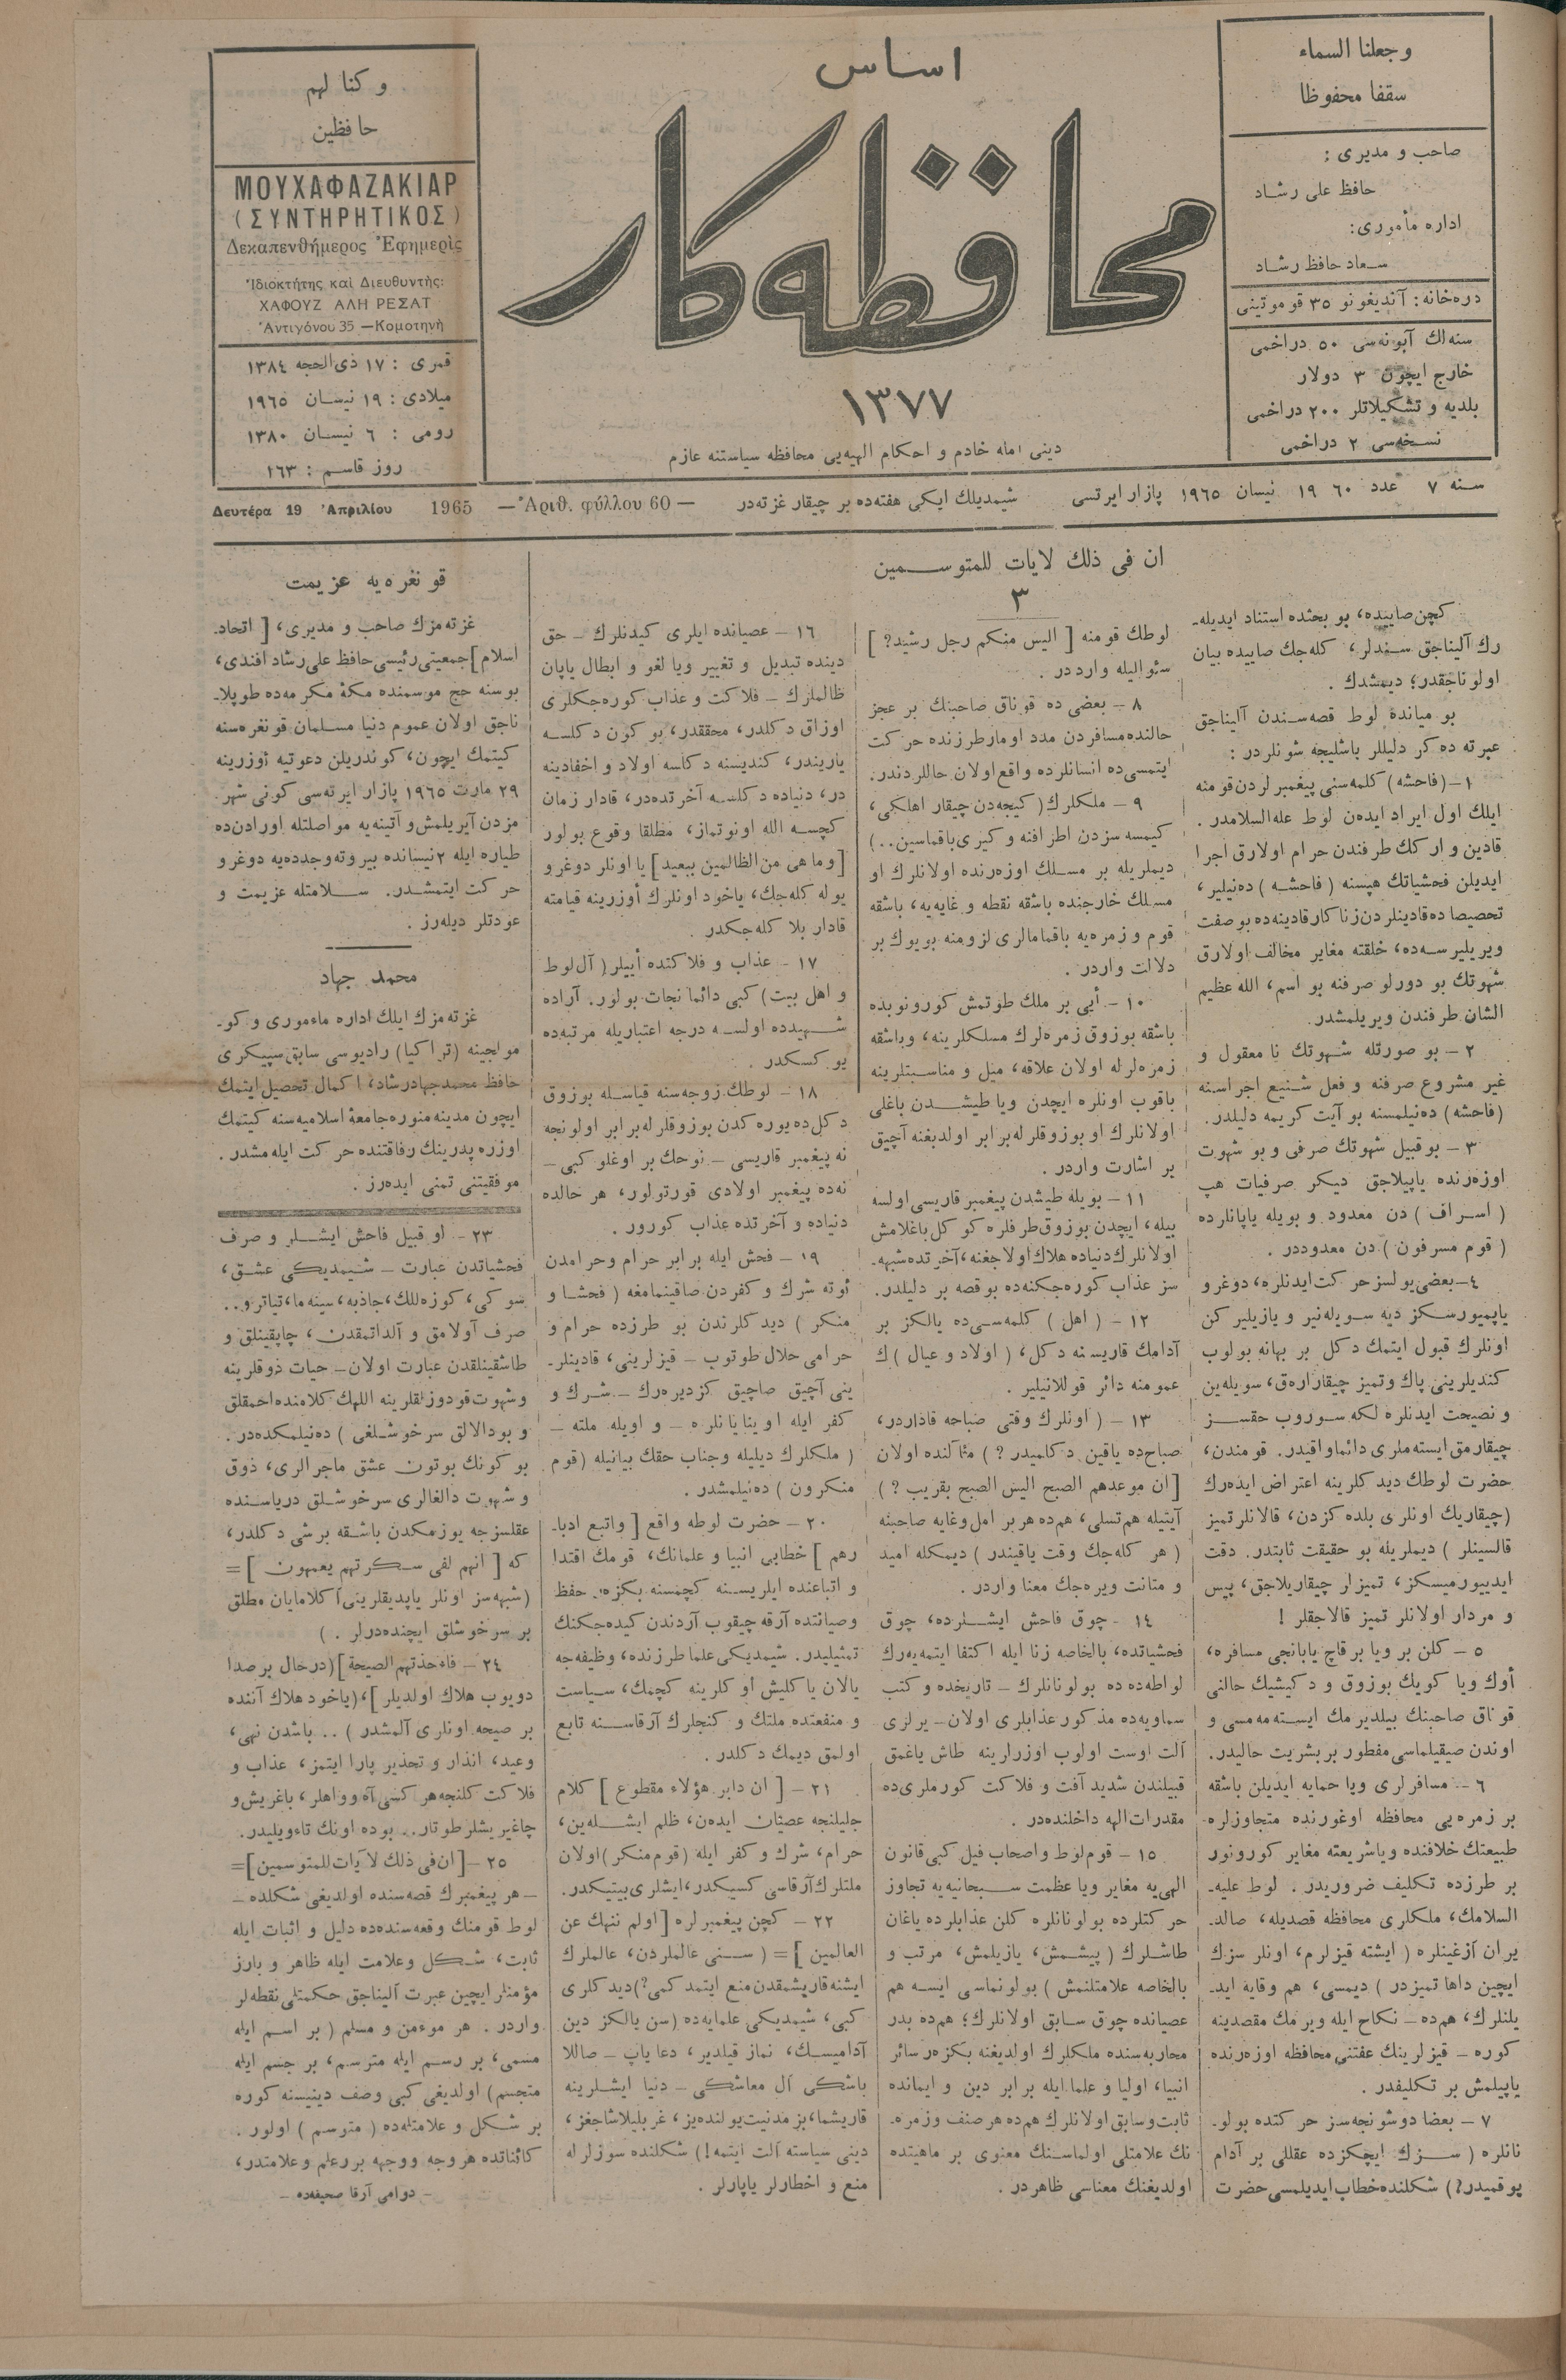 وجعلنا السماء
سقفا محفوظا
صاحب و مديرى :
حافظ على رشاد
اداره مأمورى:
سعاد حافظ رشاد
دره‌خانه: آنديغونو ٣٥ قوموتينى
سنه‌لك آبونه‌سى ٥٠ دراخمى
خارج ايچون ٣ دولار
بلديه و تشكيلاتلر ٢٠٠ دراخمى
نسخه‌سى ٢ دراخمى
اساس
محافظه‌كار
١٣٧٧
دينى امله خادم و احكام الهيه‌يى محافظه سياستنه عازم
و كنا لهم
حافظين
ΜΟΥΧΑΦΑΖΑΚΙΑΡ
(ΣΥΝΤΗΡΗΤΙΚΟΣ)
Δεκαπενθήμερος Ἐφημερὶς
Ἰδιοκτήτης καὶ Διευθυντὴς:
ΧΑΦΟΥΖ ΑΛΗ ΡΕΣΑΤ
Ἀντιγόνου 35 —Κομοτηνὴ
قمرى : ١٧ ذى‌الحجه ١٣٨٤
ميلادى : ١٩ نيسان ١٩٦٥
رومى : ٦ نيسان ١٣٨٠
روز قاسم : ١٦٣
سنه ٧ عدد ٦٠ ١٩ نيسان ١٩٦٥ پازار ايرتسى شيمديلك ايكى هفته‌ده بر چيقار غزته‌در —Ἀριθ. φύλλου 60— Δευτέρα 19 Ἀπριλίου 1965
ان فى ذلك لايات للمتوسمين
٣
كچن صاييده، بو بحثده استناد ايديله‌ـ
رك آليناجق سندلر، كله‌جك صاييده بيان
اولوناجقدر؛ ديمشدك .
بو ميانده لوط قصه‌سندن آليناجق
عبرته ده‌كر دليللر باشليجه شونلردر :
١ـ (فاحشه) كلمه‌سنى پيغمبرلردن قومنه
ايلك اول ايراد ايده‌ن لوط عله‌السلامدر.
قادين و اركك طرفندن حرام اولارق اجرا
ايديلن فحشياتك هپسنه ( فاحشه ) ده‌نيلير،
تخصيصا ده قادينلردن زناكار قادينه‌ده بو صفت
ويريليرسه‌ده، خلقته مغاير مخالف اولارق
شهوتك بو دورلو صرفنه بو اسم، الله عظيم
الشان طرفندن ويريلمشدر.
٢ ـ بو صورتله شهوتك نا معقول و
غير مشروع صرفنه و فعل شنيع اجراسنه
(فاحشه) ده‌نيلمسنه بو آيت كريمه دليلدر.
٣ ـ بو قبيل شهوتك صرفى و بو شهوت
اوزه‌رنده ياپيلاجق ديكر صرفيات هپ
( اسراف ) دن معدود و بويله ياپانلرده
( قوم مسرفون ) دن معدوددر .
٤ـ بعضى يولسز حركت ايدنلره، دوغرو
ياپميورسكز ديه سويله‌نير و يازيليركن
اونلرك قبول ايتمك دكل بر بهانه بولوب
كنديلرينى پاك و تميز چيقارارق، سويله‌ين
و نصيحت ايدنلره لكه سوروب حقسز
چيقارمق ايسته‌ملرى دائما واقيدر. قومندن،
حضرت لوطك ديدكلرينه اعتراض ايده‌رك
(چيقاريك اونلرى بلده كزدن، قالانلر تميز
قالسينلر ) ديملريله بو حقيقت ثابتدر. دقت
ايدييورميسكز، تميزلر چيقاريلاجق، پيس
و مردار اولانلر تميز قالاجقلر !
٥ ـ كلن بر ويا بر قاچ يابانجى مسافره،
أوك ويا كويك بوزوق و دكيشيك حالنى
قوناق صاحبنك بيلديرمك ايسته‌مه‌مسى و
اوندن صيقيلماسى مفطور بر بشريت حاليدر.
٦ ـ مسافرلرى ويا حمايه ايديلن باشقه
بر زمره‌يى محافظه اوغورنده متجاوزلره
طبيعتك خلافنده ويا شريعته مغاير كورونور
بر طرزده تكليف ضروريدر . لوط عليه‌ـ
السلامك، ملكلرى محافظه قصديله، صالد‌ـ
يران آزغينلره ( ايشته قيزلرم، اونلر سزك
ايچين داها تميزدر ) ديمسى، هم وقايه ايد‌ـ
يلنلرك، هم‌ده ـ نكاح ايله ويرمك مقصدينه
كوره ـ قيزلرينك عفتنى محافظه اوزه‌رنده
ياپيلمش بر تكليفدر .
٧ ـ بعضا دوشونجه‌سز حركتده بولو‌ـ
نانلره ( سزك ايچكزده عقللى بر آدام
يوقميدر؟) شكلنده خطاب ايديلمسى حضرت
لوطك قومنه [ اليس منكم رجل رشيد؟ ]
سئواليله وارددر .
٨ ـ بعضى ده قوناق صاحبنك بر عجز
حالنده مسافردن مدد اومار طرزنده حركت
ايتمسى‌ده انسانلرده واقع اولان حاللردندر.
٩ ـ ملكلرك( كيجه‌دن چيقار اهلكى،
كيمسه سزدن اطرافنه و كيرى باقماسين..)
ديملريله بر مسلك اوزه‌رنده اولانلرك او
مسلك خارجنده باشقه نقطه و غايه‌يه، باشقه
قوم و زمره‌يه باقمامالرى لزومنه بويوك بر
دلالت واردر .
١٠ ـ أيى بر ملك طوتمش كورونوبده
باشقه بوزوق زمره‌لرك مسلكلرينه، وباشقه
زمره‌لرله اولان علاقه، ميل و مناسبتلرينه
باقوب اونلره ايچدن ويا طيشدن باغلى
اولانلرك او بوزوقلرله برابر اولديغنه آچيق
بر اشارت واردر .
١١ ـ بويله طيشدن پيغمبر قاريسى اولسه
بيله، ايچدن بوزوق طرفلره كوكل باغلامش
اولانلرك دنياده هلاك اولاجغنه، آخرتده شبهه‌ـ
سز عذاب كوره‌جكنه‌ده بو قصه بر دليلدر.
١٢ ـ ( اهل ) كلمه‌سى‌ده يالكز بر
آدامك قاريسنه دكل، ( اولاد و عيال )ك
عمومنه دائر قوللانيلير .
١٣ ـ ( اونلرك وقتى صباحه قاداردر،
صباح‌ده ياقين دكلميدر ؟ ) مئالنده اولان
[ان موعدهم الصبح اليس الصبح بقريب ؟ )
آيتيله هم تسلى، هم‌ده هر بر امل و غايه صاحبنه
( هر كله‌جك وقت ياقيندر ) ديمكله اميد
و متانت ويره‌جك معنا واردر .
١٤ ـ چوق فاحش ايشلرده، چوق
فحشياتده، بالخاصه زنا ايله اكتفا ايتمه‌يه‌رك
لواطه‌ده ده بولونانلرك ـ تاريخده و كتب
سماويه‌ده مذكور عذابلرى اولان ـ يرلرى
آلت اوست اولوب اوزرلرينه طاش ياغمق
قبيلندن شديد آفت و فلاكت كورملرى‌ده
مقدرات الهه داخلنده‌در.
١٥ ـ قوم لوط و اصحاب فيل كبى قانون
الهى‌يه مغاير ويا عظمت سبحانيه‌يه تجاوز
حركتلرده بولونانلره كلن عذابلرده ياغان
طاشلرك ( پيشمش، يازيلمش، مرتب و
بالخاصه علامتلنمش ) بولونماسى ايسه هم
عصيانده چوق سابق اولانلرك؛ هم‌ده بدر
محاربه‌سنده ملكلرك اولديغنه بكزه‌ر سائر
انبيا، اوليا و علما ايله برابر دين و ايمانده
ثابت و سابق اولانلرك هم‌ده هر صنف و زمره‌ـ
نك علامتلى اولماسنك معنوى بر ماهيتده
اولديغنك معناسى ظاهردر .
١٦ ـ عصيانده ايلرى كيدنلرك ـ حق
دينده تبديل و تغيير ويا لغو و ابطال ياپان
ظالملرك ـ فلاكت و عذاب كوره‌جكلرى
اوزاق دكلدر، محققدر، بو كون دكلسه
ياريندر، كنديسنه دكلسه اولاد و احفادينه
در، دنياده دكلسه آخرتده‌در، قادار زمان
كچسه الله اونوتماز، مطلقا وقوع بولور
[وما هى من الظالمين ببعيد] يا اونلر دوغرو
يوله كله‌جك، ياخود اونلرك أوزرينه قيامته
قادار بلا كله‌جكدر .
١٧ ـ عذاب و فلاكتده أييلر( آل لوط
و اهل بيت) كبى دائما نجات بولور. آراده
شهيدده اولسه درجه اعتباريله مرتبه‌ده
يوكسكدر .
١٨ ـ لوطك زوجه‌سنه قياسله بوزوق
دكل‌ده يوره‌كدن بوزوقلرله برابر اولونجه
نه پيغمبر قاريسى ـ نوحك بر اوغلو كبى ـ
نه‌ده پيغمبر اولادى قورتولور، هر حالده
دنياده و آخرتده عذاب كورور .
١٩ ـ فحش ايله برابر حرام و حرامدن
أوته شرك و كفردن صاقينمامغه ( فحشا و
منكر ) ديدكلرندن بو طرزده حرام و
حرامى حلال طوتوب ـ قيزلرينى، قادينلر‌ـ
ينى آچيق صاچيق كزديره‌رك ـ شرك و
كفر ايله اوينايانلره ـ و اويله ملته ـ
( ملكلرك ديليله و جناب حقك بيانيله (قوم
منكرون ) ده‌نيلمشدر.
٢٠ ـ حضرت لوطه واقع [ واتبع ادبا‌ـ
رهم ] خطابى انبيا و علمانك، قومك اقتدا
و اتباعنده ايلريسنه كچمسنه بكزه‌ر حفظ
وصيانتده آرقه چيقوب آردندن كيده‌جكنك
تمثيليدر. شيمديكى علما طرزنده، وظيفه‌جه
يالان ياكليش أوكلرينه كچمك، سياست
و منفعتده ملتك و كنجلرك آرقاسنه تابع
اولمق ديمك دكلدر.
٢١ ـ [ ان دابر هؤلاء مقطوع ] كلام
جليلنجه عصيان ايده‌ن، ظلم ايشله‌ين،
حرام، شرك و كفر ايله (قوم منكر) اولان
ملتلرك آرقاسى كسيكدر، ايشلرى بيتيكدر.
٢٢ ـ كچن پيغمبرلره [ اولم ننهك عن
العالمين ]= ( سنى عالملردن، عالملرك
ايشنه قاريشمقدن منع ايتمدكمى؟) ديدكلرى
كبى، شيمديكى علمايه‌ده (سن يالكز دين
آداميسك، نماز قيلدير، دعا ياپ ـ صاللا
باشكى آل معاشكى ـ دنيا ايشلرينه
قاريشما، بز مدنيت يولنده‌يز، غربليلاشاجغز،
دينى سياسته آلت ايتمه!) شكلنده سوزلرله
منع و اخطارلر ياپارلر.
قونغره‌يه عزيمت
غزته‌مزك صاحب و مديرى، [ اتحاد‌ـ
اسلام ] جمعيتى رئيسى حافظ على رشاد افندى،
بو سنه حج موسمنده مكهٔ مكرمه‌ده طوپلا‌ـ
ناجق اولان عموم دنيا مسلمان قونغره‌سنه
كيتمك ايچون، كوندريلن دعوتيه أوزرينه
٢٩ مارت ١٩٦٥ پازار ايرته‌سى كونى شهر‌ـ
مزدن آيريلمش و آتينه‌يه مواصلتله اورادن‌ده
طياره ايله ٢ نيسانده بيروته وجدده‌يه دوغرو
حركت ايتمشدر. سلامتله عزيمت و
عودتلر ديله‌رز .
محمد جهاد
غزته‌مزك ايلك اداره مأمورى و كو‌ـ
مولجينه (تراكيا) راديوسى سابق سپيكرى
حافظ محمد جهاد رشاد، اكمال تحصيل ايتمك
ايچون مدينه منوره جامعهٔ اسلاميه‌سنه كيتمك
اوزره پدرينك رفاقتنده حركت ايله‌مشدر.
موفقيتنى تمنى ايده‌رز .
٢٣ ـ او قبيل فاحش ايشلر و صرف
فحشياتدن عبارت ـ شيمديكى عشق،
سوكى، كوزه‌للك، جاذبه، سينه‌ما، تياترو..
صرف آولامق و آلداتمقدن، چاپقينلق و
طاشقينلقدن عبارت اولان ـ حيات ذوقلرينه
و شهوت قودوزلقلرينه اللهك كلامنده احمقلق
و بودالالق سرخوشلغى ) ده‌نيلمكده‌در.
بو كونك بوتون عشق ماجرالرى، ذوق
و شهوت دالغالرى سرخوشلق درياسنده
عقلسزجه يوزمكدن باشقه برشى دكلدر،
كه [ انهم لفى سكرتهم يعمهون ]=
(شبهه‌سز اونلر ياپديقلرينى آكلامايان مطلق
بر سرخوشلق ايچنده‌درلر . )
٢٤ ـ فاءخذتهم الصيحة ](درحال بر صدا
دويوب هلاك اولديلر ]، (ياخود هلاك آننده
بر صيحه اونلرى آلمشدر ) .. باشدن نهى،
وعيد، انذار و تحذير پارا ايتمز، عذاب و
فلاكت كلنجه هر كسى آه وواهلر، باغريش و
چاغيريشلر طوتار.. بوده اونك تاءويليدر.
٢٥ ـ [ان فى ذلك لآيات للمتوسمين]=
ـ هر پيغمبرك قصه‌سنده اولديغى شكلده ـ
لوط قومنك وقعه‌سنده‌ده دليل و اثبات ايله
ثابت، شكل و علامت ايله ظاهر و بارز
مؤمنلر ايچين عبرت آليناجق حكمتلى نقطه‌لر
واردر . هر موءمن و مسلم ( بر اسم ايله
مسمى، بر رسم ايله مترسم، بر جسم ايله
متجسم) اولديغى كبى وصف دينيسنه كوره
بر شكل و علامتله‌ده ( متوسم ) اولور.
كائناتده هر وجه و وجهه بر رعلم و علامتدر،
ـ دوامى آرقا صحيفه‌ده ـ